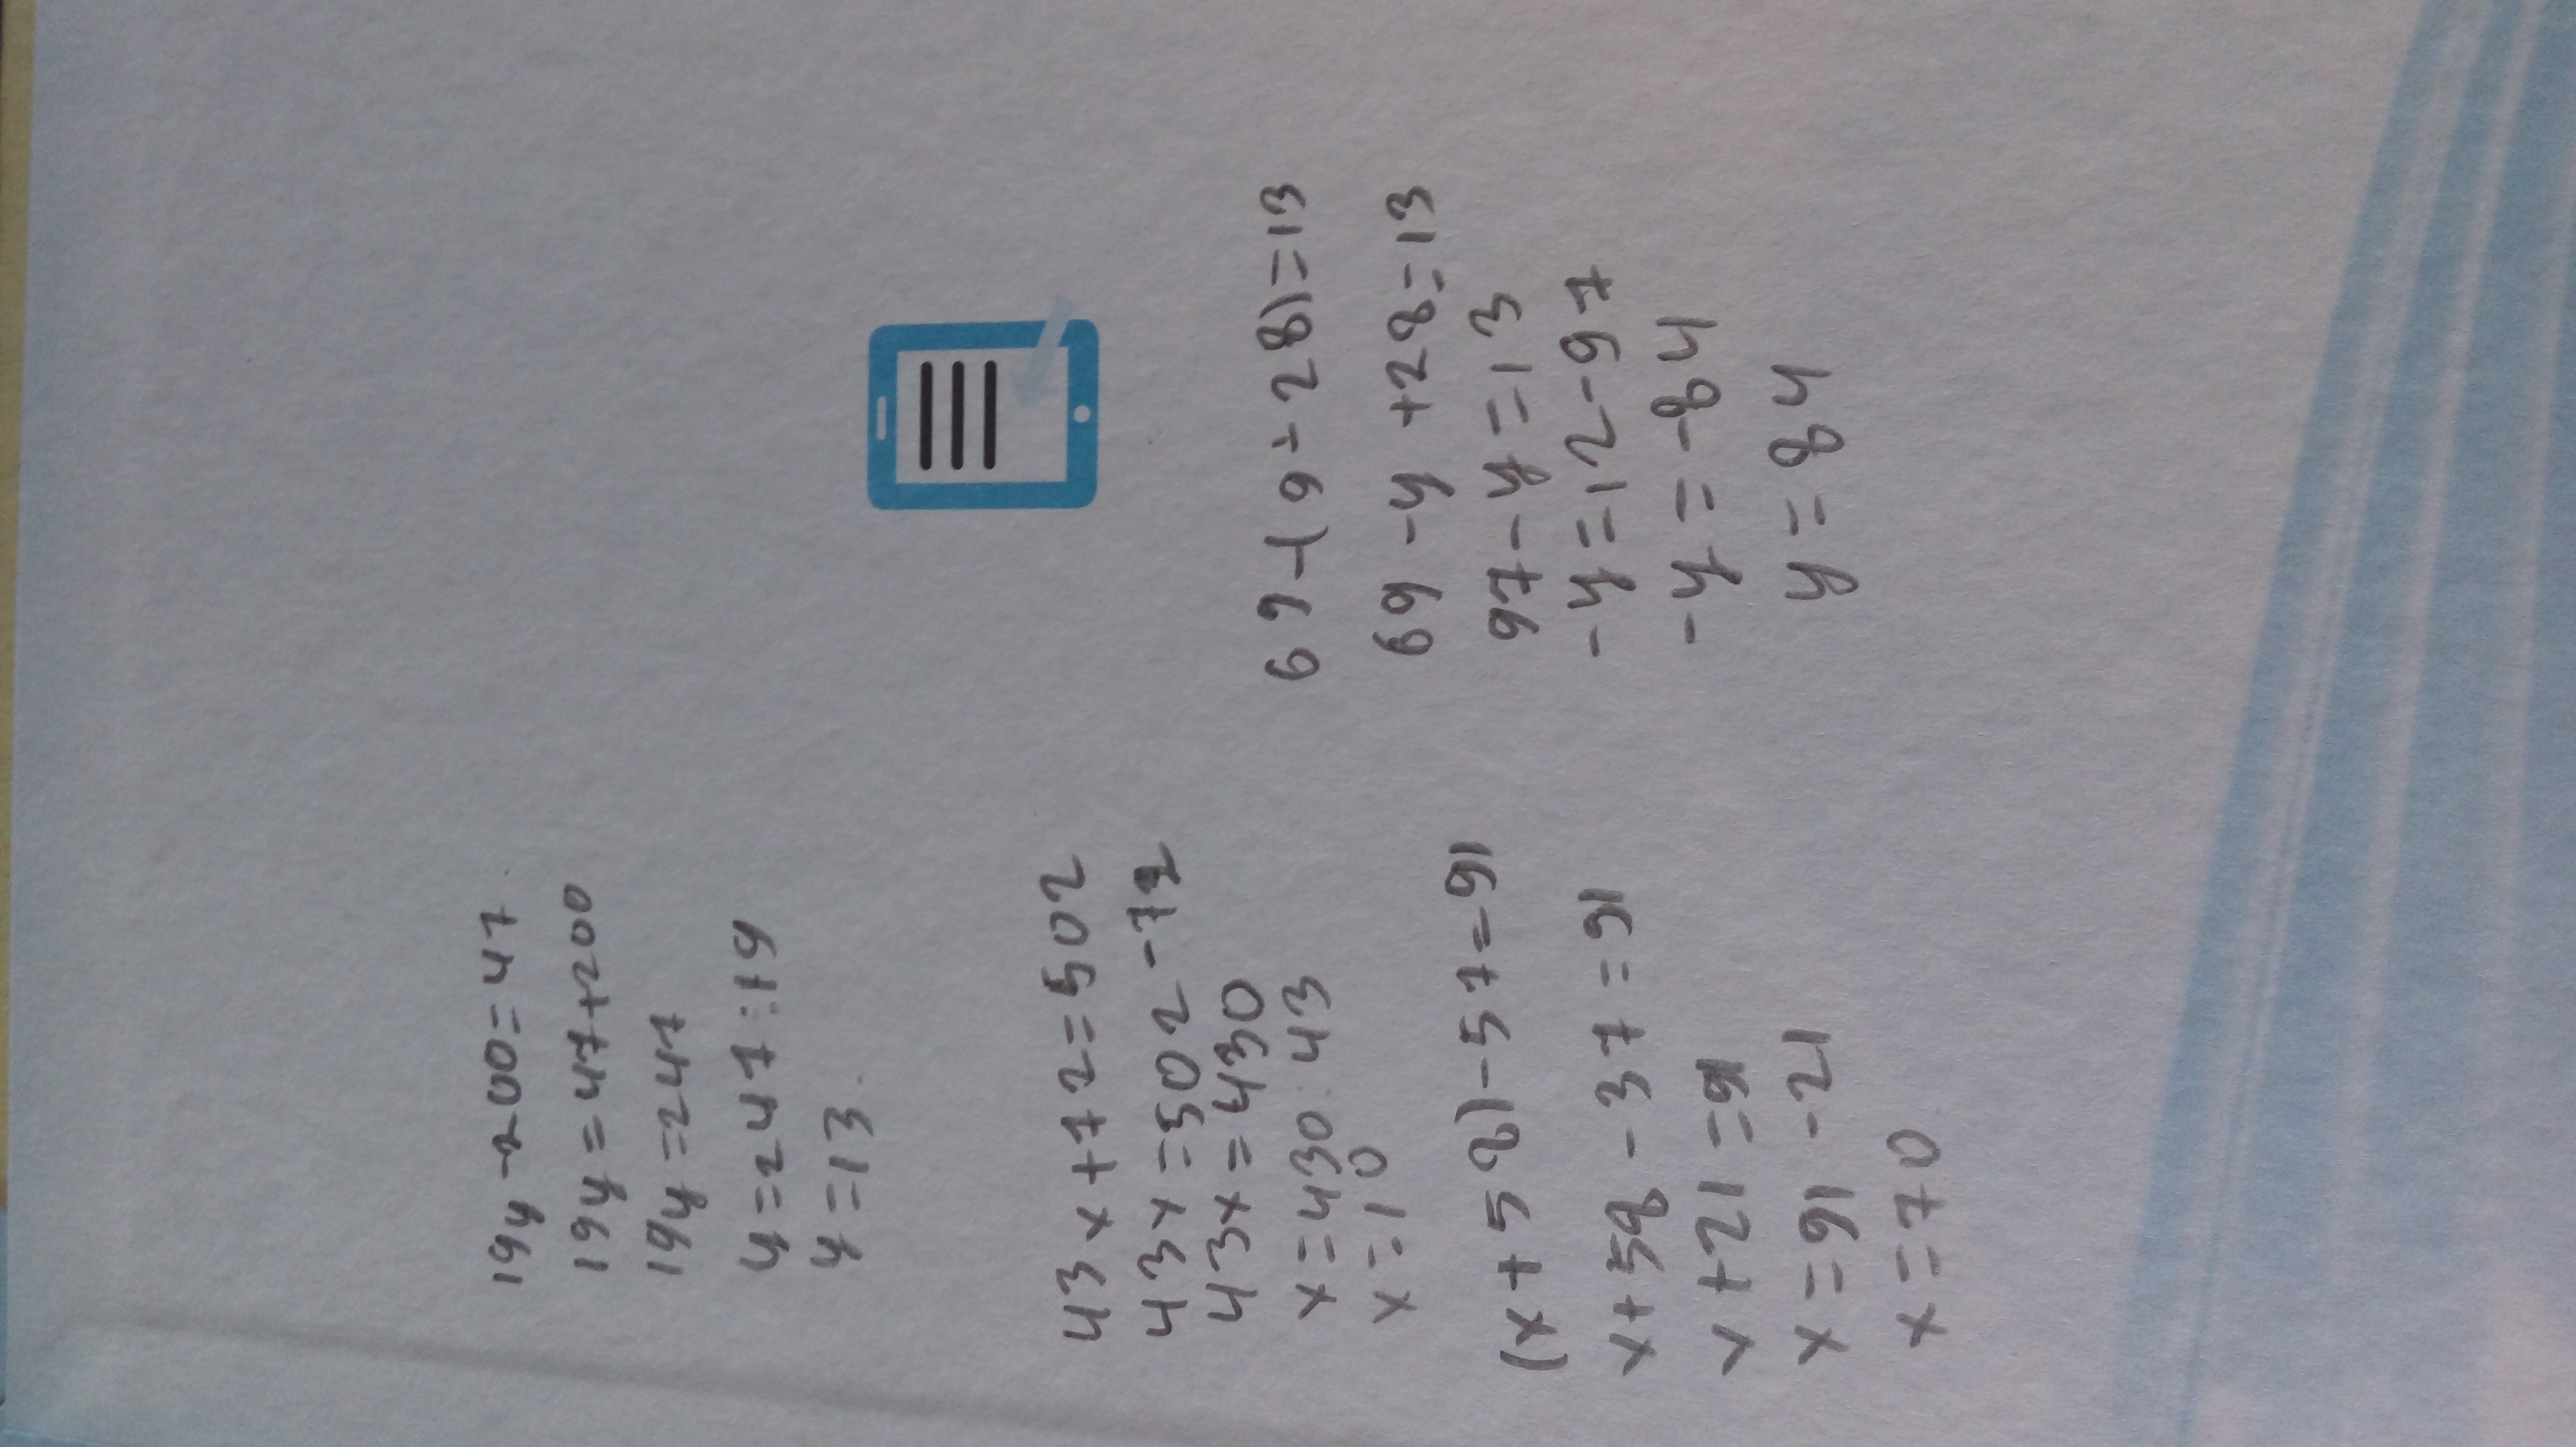 19y-200=47
19y=47+200
19y=247
y=247:19
y=13.
43x+72=502
43x=502-72
43x=430
x=430:43
x=10
(x+58)-57=91
x+58-37=91
x+21=91
x=91-21
x=70
69-(9-28)=13
69-y+28=13
97-y=13
-y=12-97
-y=-84
y=84